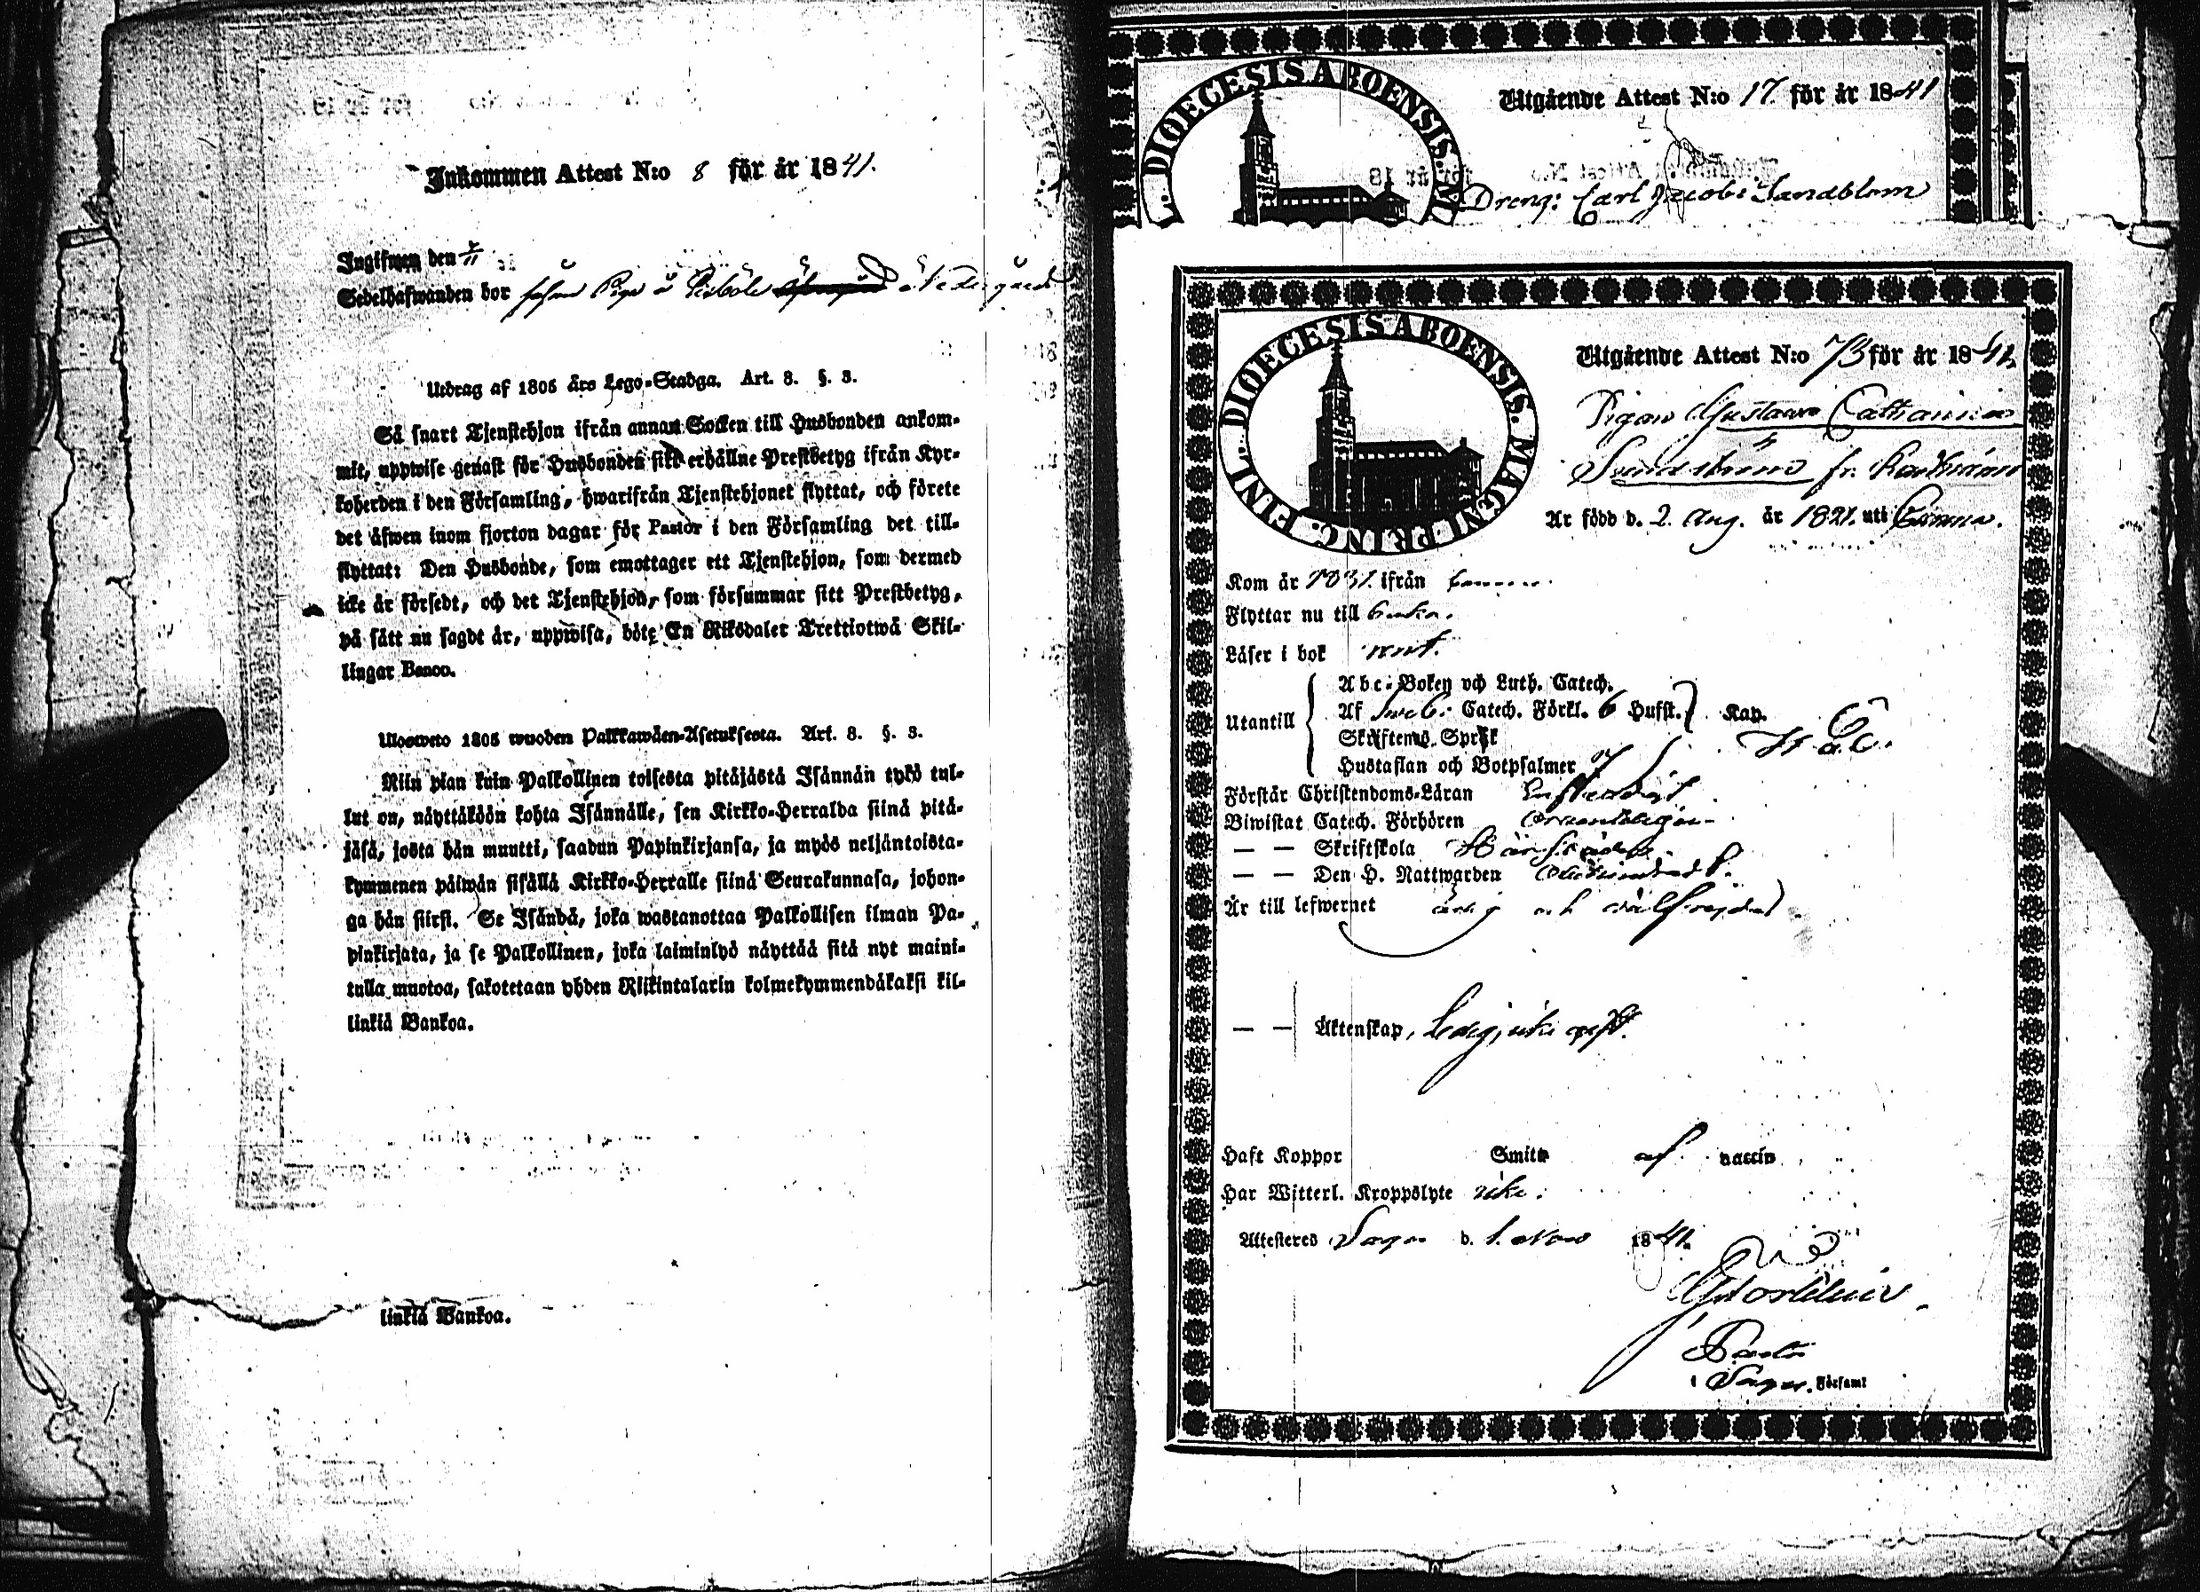 Inkommen Attest N:o 8 för år 1841.
Ingifwen den
Sedelhafwanden bor som Piga å
Utdrag af 1805 års Lego-Stadga. Art. 8. §. 3.
Så snart Tjenstehjon ifrån annan Socken till Husbonden ankom-
mit, uppwise genast för Husbonden sitt erhållne Prestbetyg ifrån Kyr-
koherden i den Församling, hwarifrån Tjenstehjonet flyttat, och förete
det äfwen inom fjorton dagar för Pastor i den Församling det till-
flyttat: Den Husbonde, som emottager ett Tjenstehjon, som dermed
icke är försedt, och det Tjenstehjon, som försummar sitt Prestbetyg,
på sätt nu sagdt är, uppwisa, böte En Riksdaler Trettiotwå Skil-
lingar Banco.
Ulosweto 1805 wuoden Palkkawäen-Asetuksesta. Art. 8. §. 3.
Niin pian kuin Palkollinen toisesta pitäjästä Isännän tykö tul-
lut on, näyttäköön kohta Isännälle, sen Kirkko-Herralda siinä pitä-
jäsä, josta hän muutti, saadun Papinkirjansa, ja myös neljäntoista-
kymmenen päiwän sisällä Kirkko-Herralle siinä Seurakunnasa, johon-
ga hän siirsi. Se Isändä, joka wastanottaa Palkollisen ilman Pa-
pinkirjata, ja se Palkollinen, joka laiminlyö näyttää sitä nyt maini-
tulla muotoa, sakotetaan yhden Riikintalarin kolmekymmendäkaksi kil-
linkiä Bankoa.
linkiä Bankoa.
DIOECESIS ABOENSIS. M
Utgående Attest N:o 17. för år 1841
Dreng: Carl Jacob Sandblom
FINL. DIOECESIS ABOENSIS. MAGNI PRINC.
Utgående Attest N:o 73 för år 1841.
Pigan Gustawa Catharina
Sundström fr.
Är född d. 2. Aug. år 1821. uti
Kom år 1831. ifrån
Flyttar nu till
Läser i bok rent.
Utantill
Abc-Boken och Luth. Catech.
Af Sveb. Catech. Förkl. 6 Hufst. Kap.
Skriftems. Språk
Hustaflan och Botpsalmer
Förstår Christendoms-Läran
Biwistat Catech. Förhören ordentligen
— — Skriftskola
— — Den H. Nattwarden
Är till lefwernet ärlig och wälfrejdad
— — Äktenskap, ledig, icke gift.
Haft Koppor Smitt af vaccin
Har Witterl. Kroppslyte icke.
Attesteras Sagu d. 1. Nov 1841.
Pastor
i Sagu. Församl